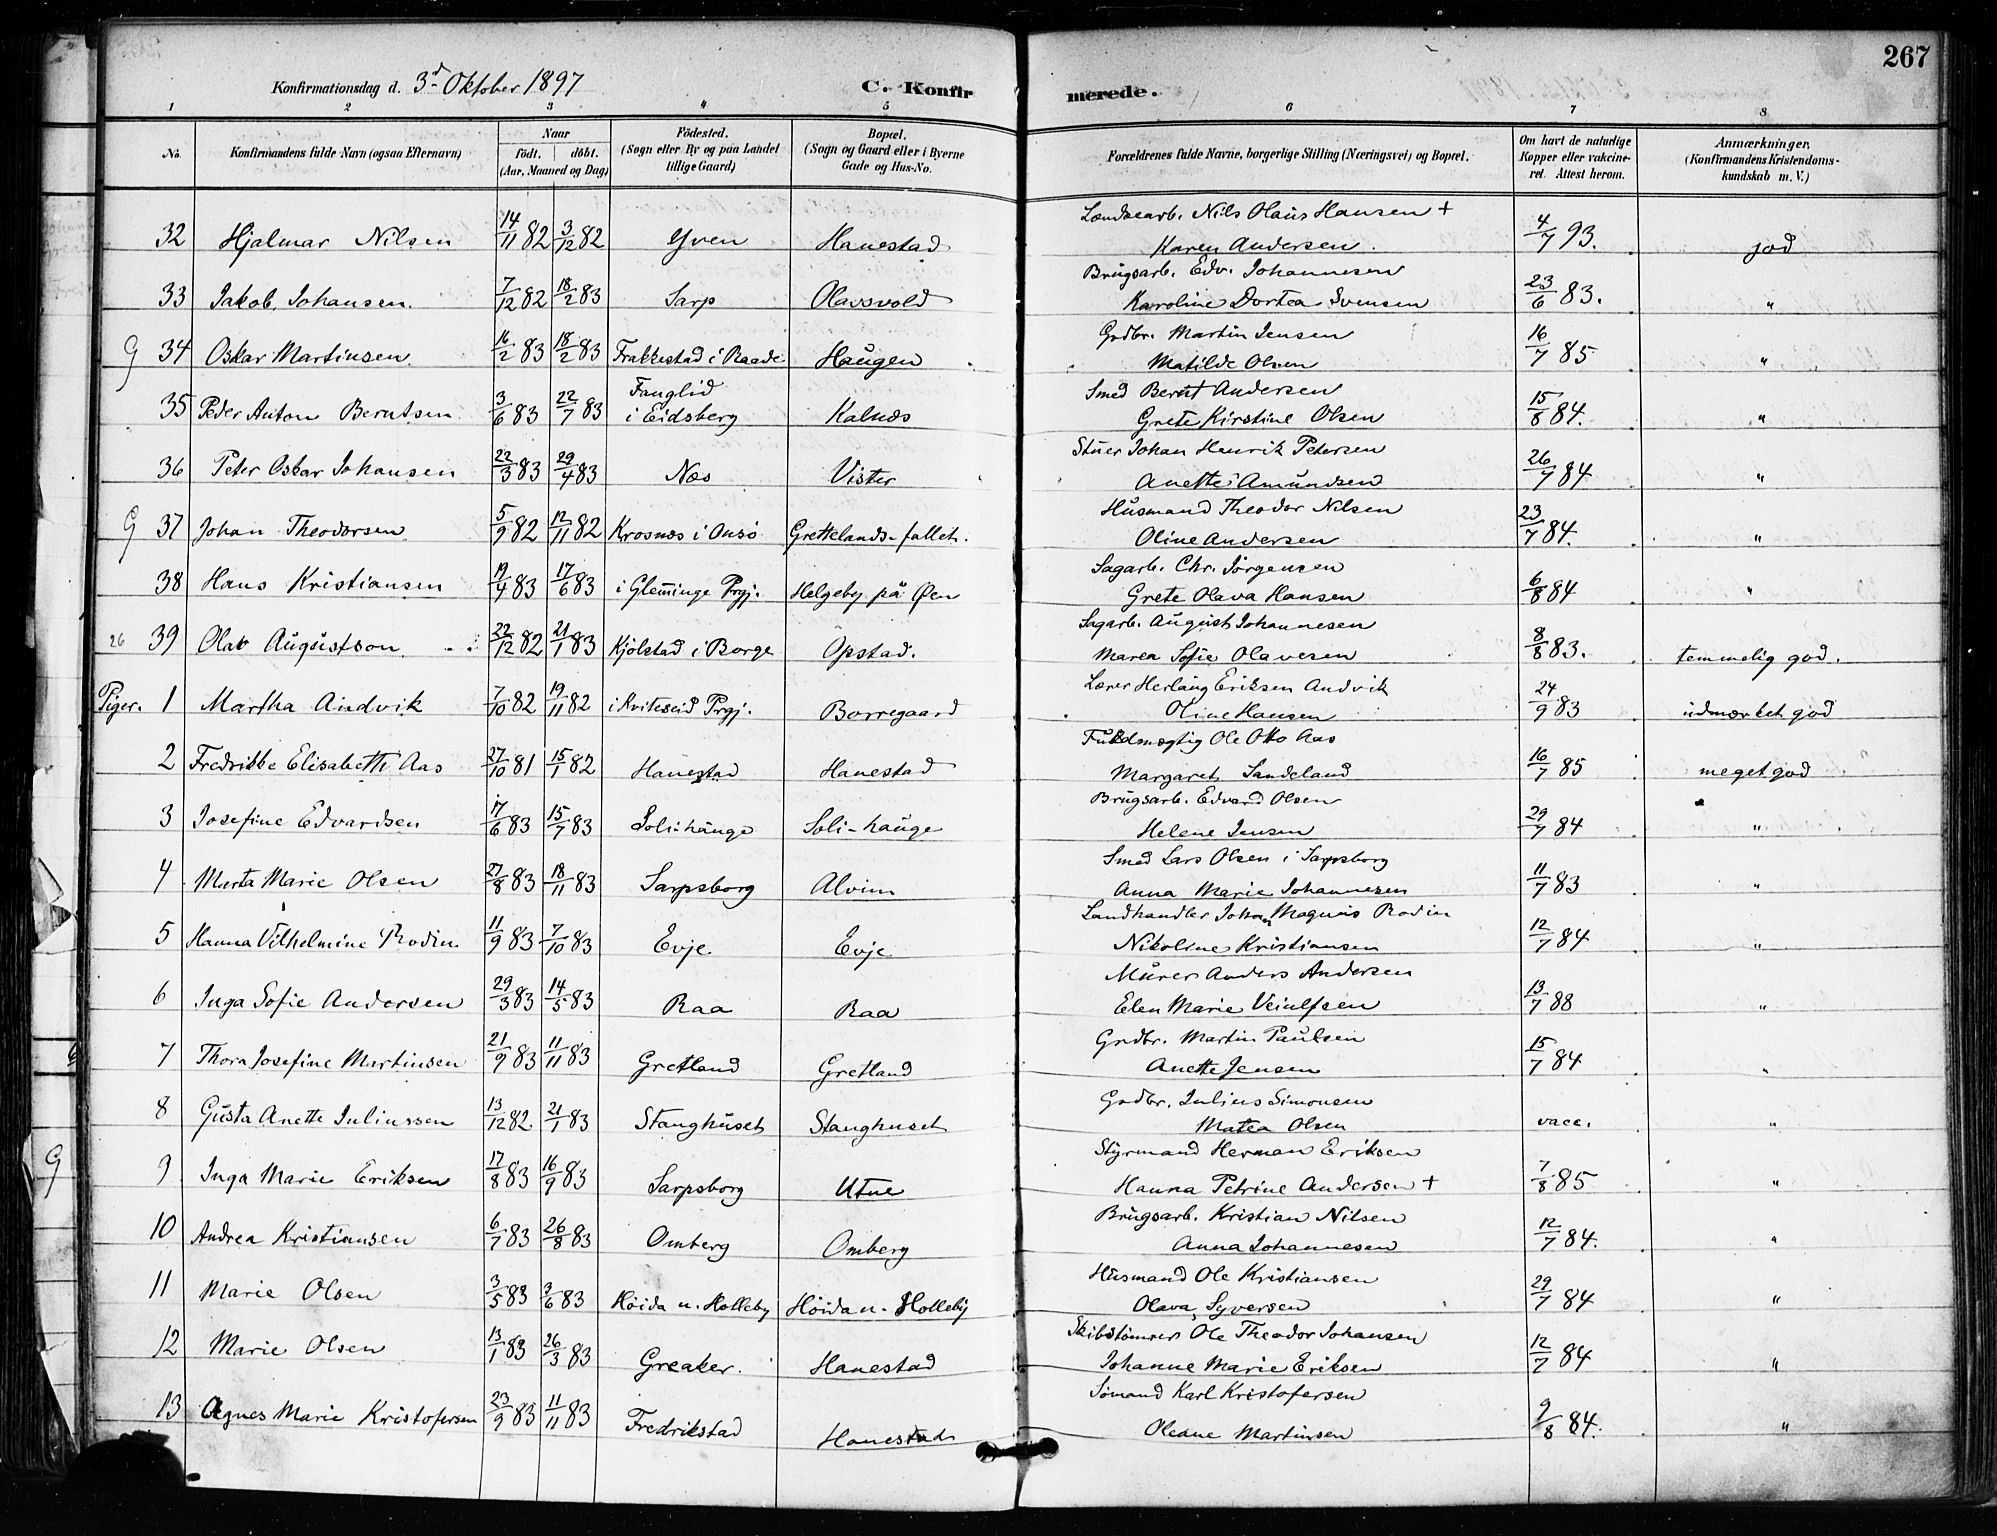 267
Konfirmationsdag d. 3d Oktober 1897 C. Konfirmerede.
1 2 3 4 5 6 7 8
No. Konfirmandens fulde Navn (ogsaa Efternavn) Naar født. døbt. (Aar, Maaned og Dag) Födested. (Sogn eller By og paa Landet tillige Gaard) Bopæl. (Sogn og Gaard eller i Byerne Gade og Hus-No. Forældrenes fulde Navne, borgerlige Stilling (Næringsvei) og Bopæl. Om havt de naturlige Kopper eller vakcineret. Attest herom. Anmærkninger. (Konfirmandens Kristendomskundskab m. V.)
32 Hjalmar Nilsen 14/11 82 3/12 82 Yven Hanestad Lændsearb. Nils Olaus Hansen + Karen Andersen. 4/7 93. god
33 Jakob Johansen. 7/12 82 18/2 83 Sarp Olavsvold Brugsarb. Edv. Johannesen Karoline Dortea Svensen 23/6 83. "
G 34 Oskar Martinsen. 16/2 83 18/2 83 Frakkestad i Raade Haugen Grdbr. Martin Jensen Matilde Olsen 16/7 85 "
35 Peder Anton Berntsen 3/6 83 22/7 83 Fanglid i Eidsberg Kalnæs Smed Bernt Andersen Grete Kirstine Olsen 15/8 84. "
36 Peter Oskar Johansen 22/3 83 29/4 83 Næs Vister Stuer Johan Henrik Petersen Anette Amundsen 26/7 84 "
G 37 Johan Theodorsen 5/9 82 12/11 82 Krosnæs i Onsø Grettelands-fallet. Husmand Theodor Nilsen Oline Andersen 23/7 84. "
38 Hans Kristiansen 19/4 83 17/6 83 i Glemminge Prgj. Helgeby på Øen Sagarb. Chr. Jørgensen Grete Olava Hansen 6/8 84 "
26 39 Olav Augustson 22/12 82 21/1 83 Kjølstad i Borge Opstad. Sagarb. August Johannesen Maren Sofie Olavesen 8/8 83. temmelig god.
Piger. 1 Martha Andvik 7/10 82 19/11 82 i Kviteseid Prgj. Borregaard Lærer Herlaug Eriksen Andvik Oline Hansen 24/9 83 udmærket god
2 Fredrikke Elisabeth Aas 27/10 81 15/1 82 Hanestad Hanestad Fuldmægtig Ole Otto Aas Margaret Sandeland 16/7 85 meget god
3 Josefine Edvardsen 17/6 83 15/7 83 Soli-hauge Soli-hauge Brugsarb. Edvard Olsen Helene Jensen 29/7 84 "
4 Marta Marie Olsen 27/8 83 18/11 83 Sarpsborg Alvim Smed Lars Olsen i Sarpsborg Anna Marie Johannesen 11/7 83 "
5 Hanna Vilhelmine Rodin 11/9 83 7/10 83 Evje. Evje Landhandler Johan Magnus Rodin Nikoline Kristiansen 12/7 84 "
6 Inga Sofie Andersen 29/3 83 14/5 83 Raa Raa Murer Anders Andersen Elen Marie Veiulfsen 13/7 88 "
7 Thora Josefine Martinsen 21/9 83 11/11 83 Gretland Gretland Grdbr. Martin Paulsen Anette Jensen 15/7 84 "
8 Gusta Anette Juliussen 13/12 82 21/1 83 Stanghuset Stanghuset Grdbr. Julius Simonsen Matea Olsen vacc. "
9 Inga Marie Eriksen 17/8 83 16/9 83 Sarpsborg Utne Styrmand Herman Eriksen Hanna Petrine Andersen + 7/8 85 "
10 Andrea Kristiansen 6/7 83 26/8 83 Omberg Omberg Brugsarb. Kristian Nilsen Anna Johannesen 12/7 84. "
11 Marie Olsen 3/5 83 3/6 83 Høida u. Holleby Høida u. Holleby Husmand Ole Kristiansen Olava Syversen 29/7 84 "
12 Marie Olsen 13/1 83 26/3 83 Greaker. Hanestad Skibstømrer Ole Theodor Johansen Johanne Marie Eriksen 12/7 84 "
13 Agnes Marie Kristofersen 23/9 83 11/11 83 Fredrikstad Hanestad Sømand Karl Kristofersen Oleane Martinsen 9/8 84. "
G